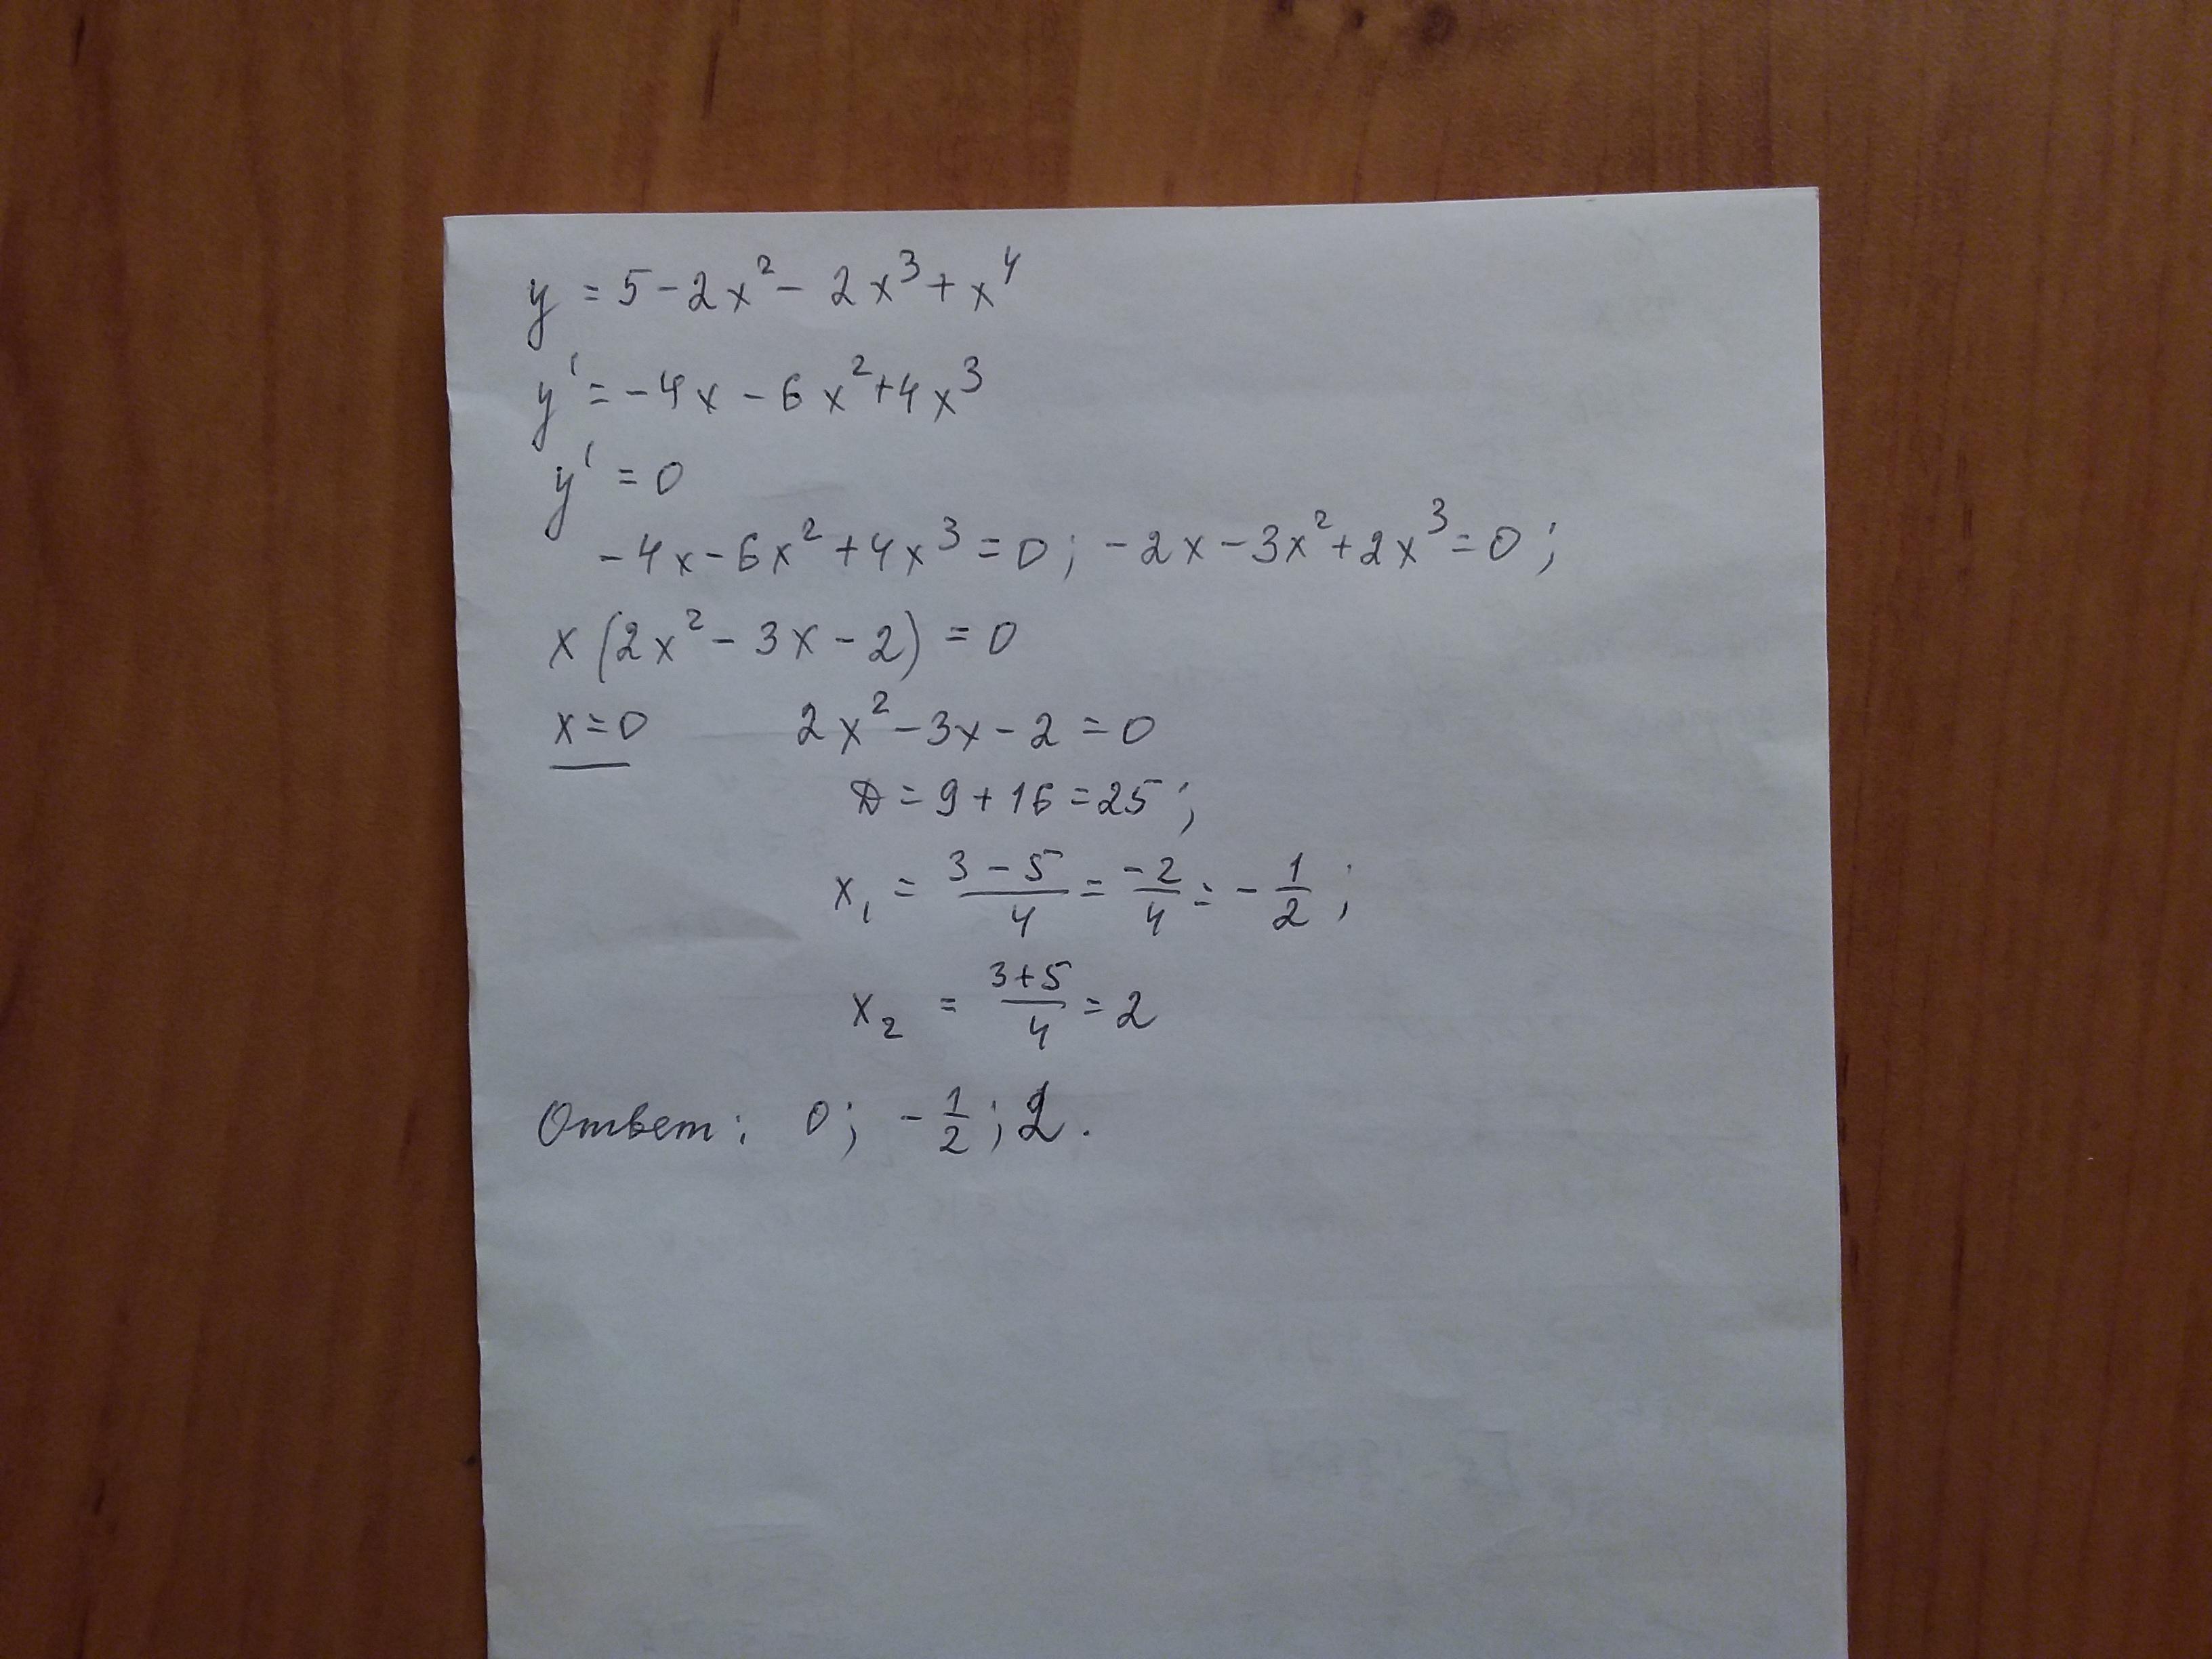 y = 5 - 2x² - 2x³ + x⁴
y' = -4x - 6x² + 4x³
y' = 0
-4x - 6x² + 4x³ = 0; -2x - 3x² + 2x³ = 0;
x(2x² - 3x - 2) = 0
x = 0 2x² - 3x - 2 = 0
D = 9 + 16 = 25;
x₁ = (3 - 5)/4 = -2/4 = -1/2;
x₂ = (3+5)/4 = 2
Ответ: 0; -1/2; 2.